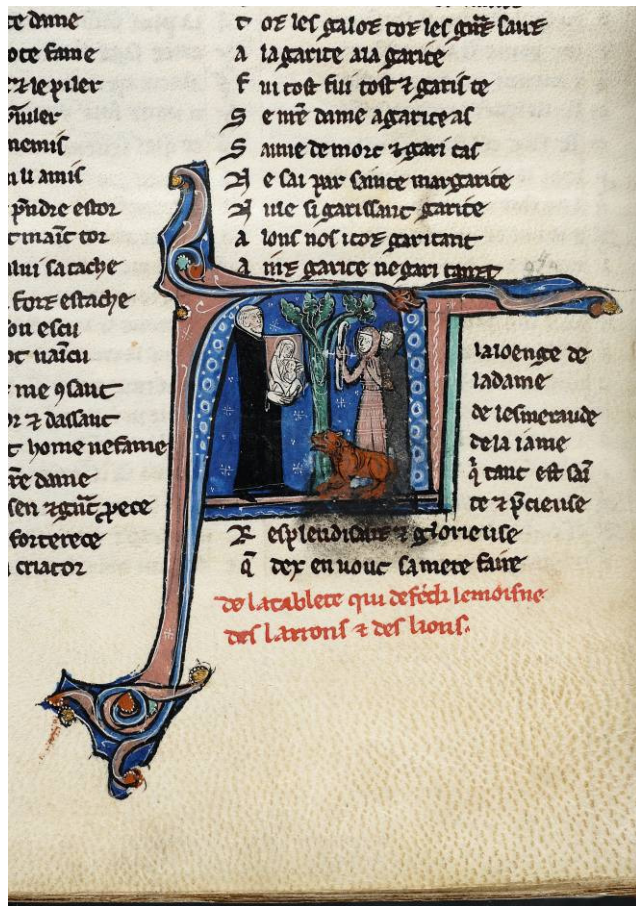 te dame
oce fame
r & le piler
nemis
n li amis
pñdre estor
t maīt tor
alui satache
fort estache
on escu
ot uaīcu
r me 9saut
or & dassaut
t home nefame
tre dame
sen & gñt pece
forterece
criator
T or les galos tor les gñs saus
A la garite ala garite
F ui tost fui tost & garis te
S e mr̄e dame a garite as
S auue de mort & gari tas
N e sai par sainte margarite
N ule si garissant garite
A lons nos itor garitant
A nr̄e garite ne gari tanz
A la loenge de
la dame
de lesmeraude
de la iame
q̃ tant est saī
te & p̃cieuse
R esplendisant & glorieuse
Q̃ dex en uout sa mere faire
de la tablete qui defēdi le moisne
des larrons & des lions.